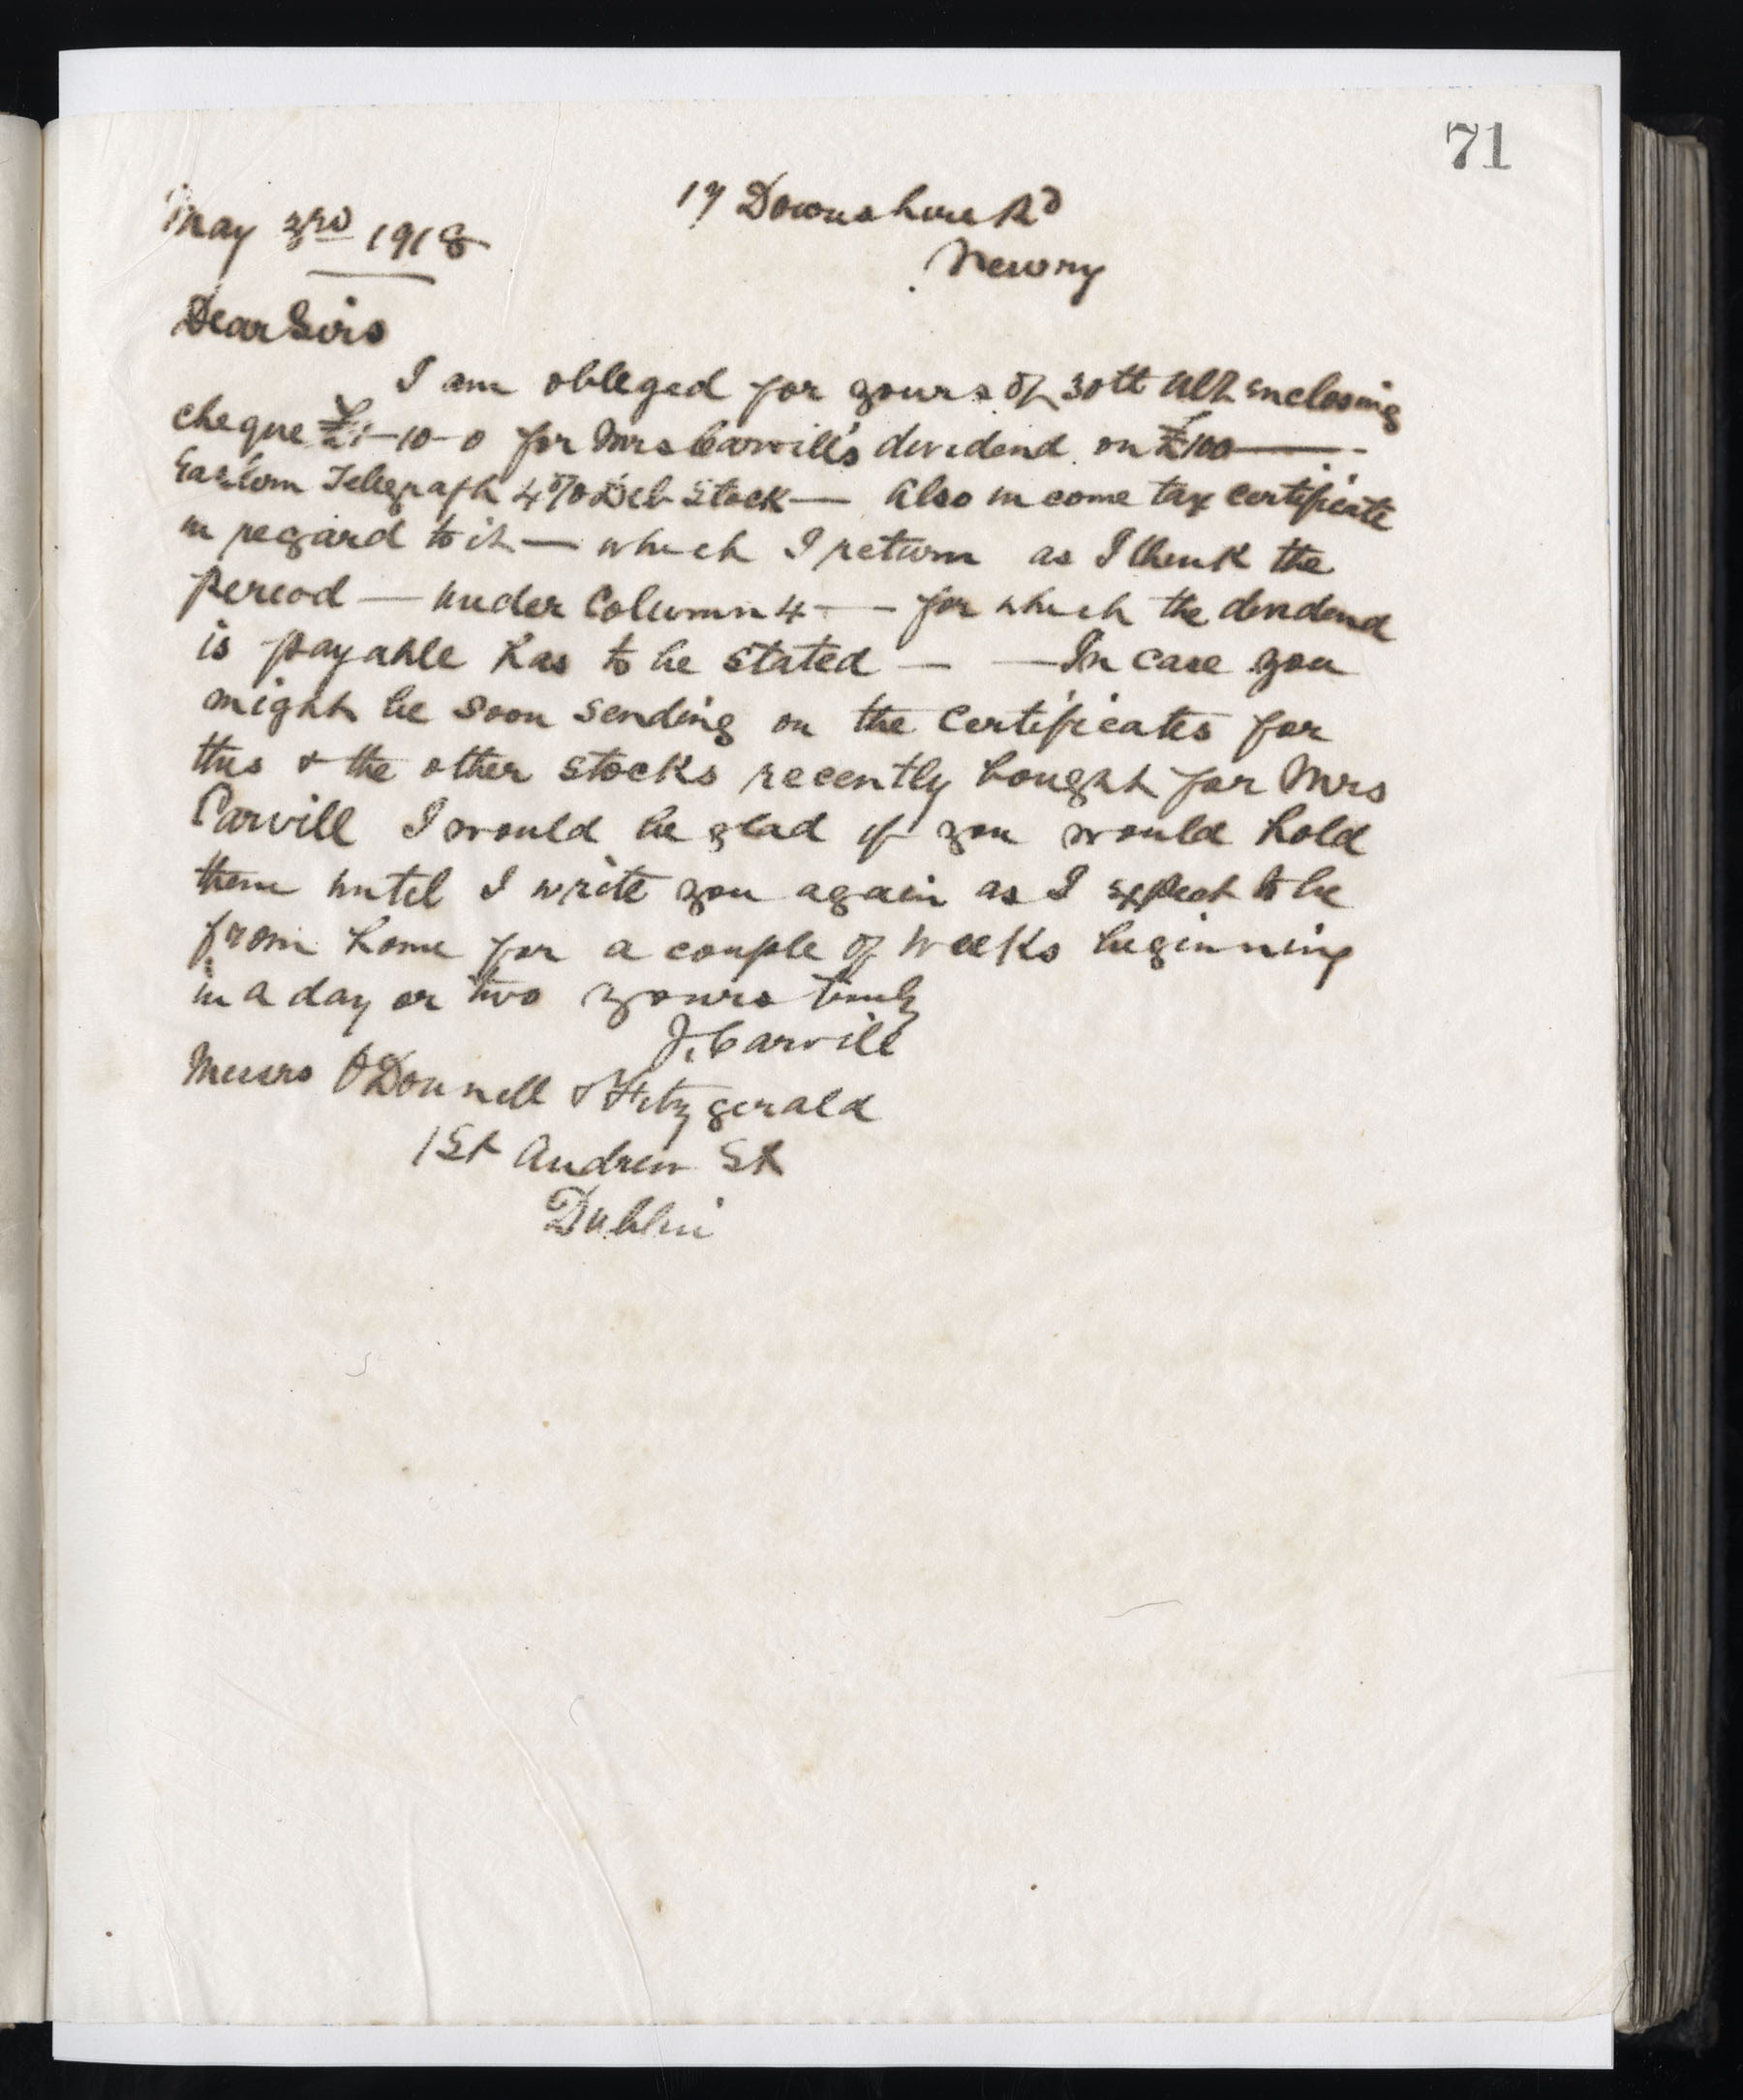 71
17 Downshire Rd
May 3rd 1918
Newry
Dear Sirs
I am obliged for yours of 30th ult enclosing
cheque £1-10-0 for Mrs Carvill's dividend on £100 —
Eastern Telegraph 4% Deb Stock — Also income tax certificate
in regard to it — which I return as I think the
period — under Column 4 — for which the dividend
is payable has to be stated — — In case you
might be soon sending on the certificates for
this & the other stocks recently bought for Mrs
Carvill I would be glad if you would hold
them until I write you again as I expect to be
from home for a couple of weeks beginning
in a day or two yours truly
J. Carvill
Messrs O'Donnell & Fitzgerald
1 St Andrew St
Dublin